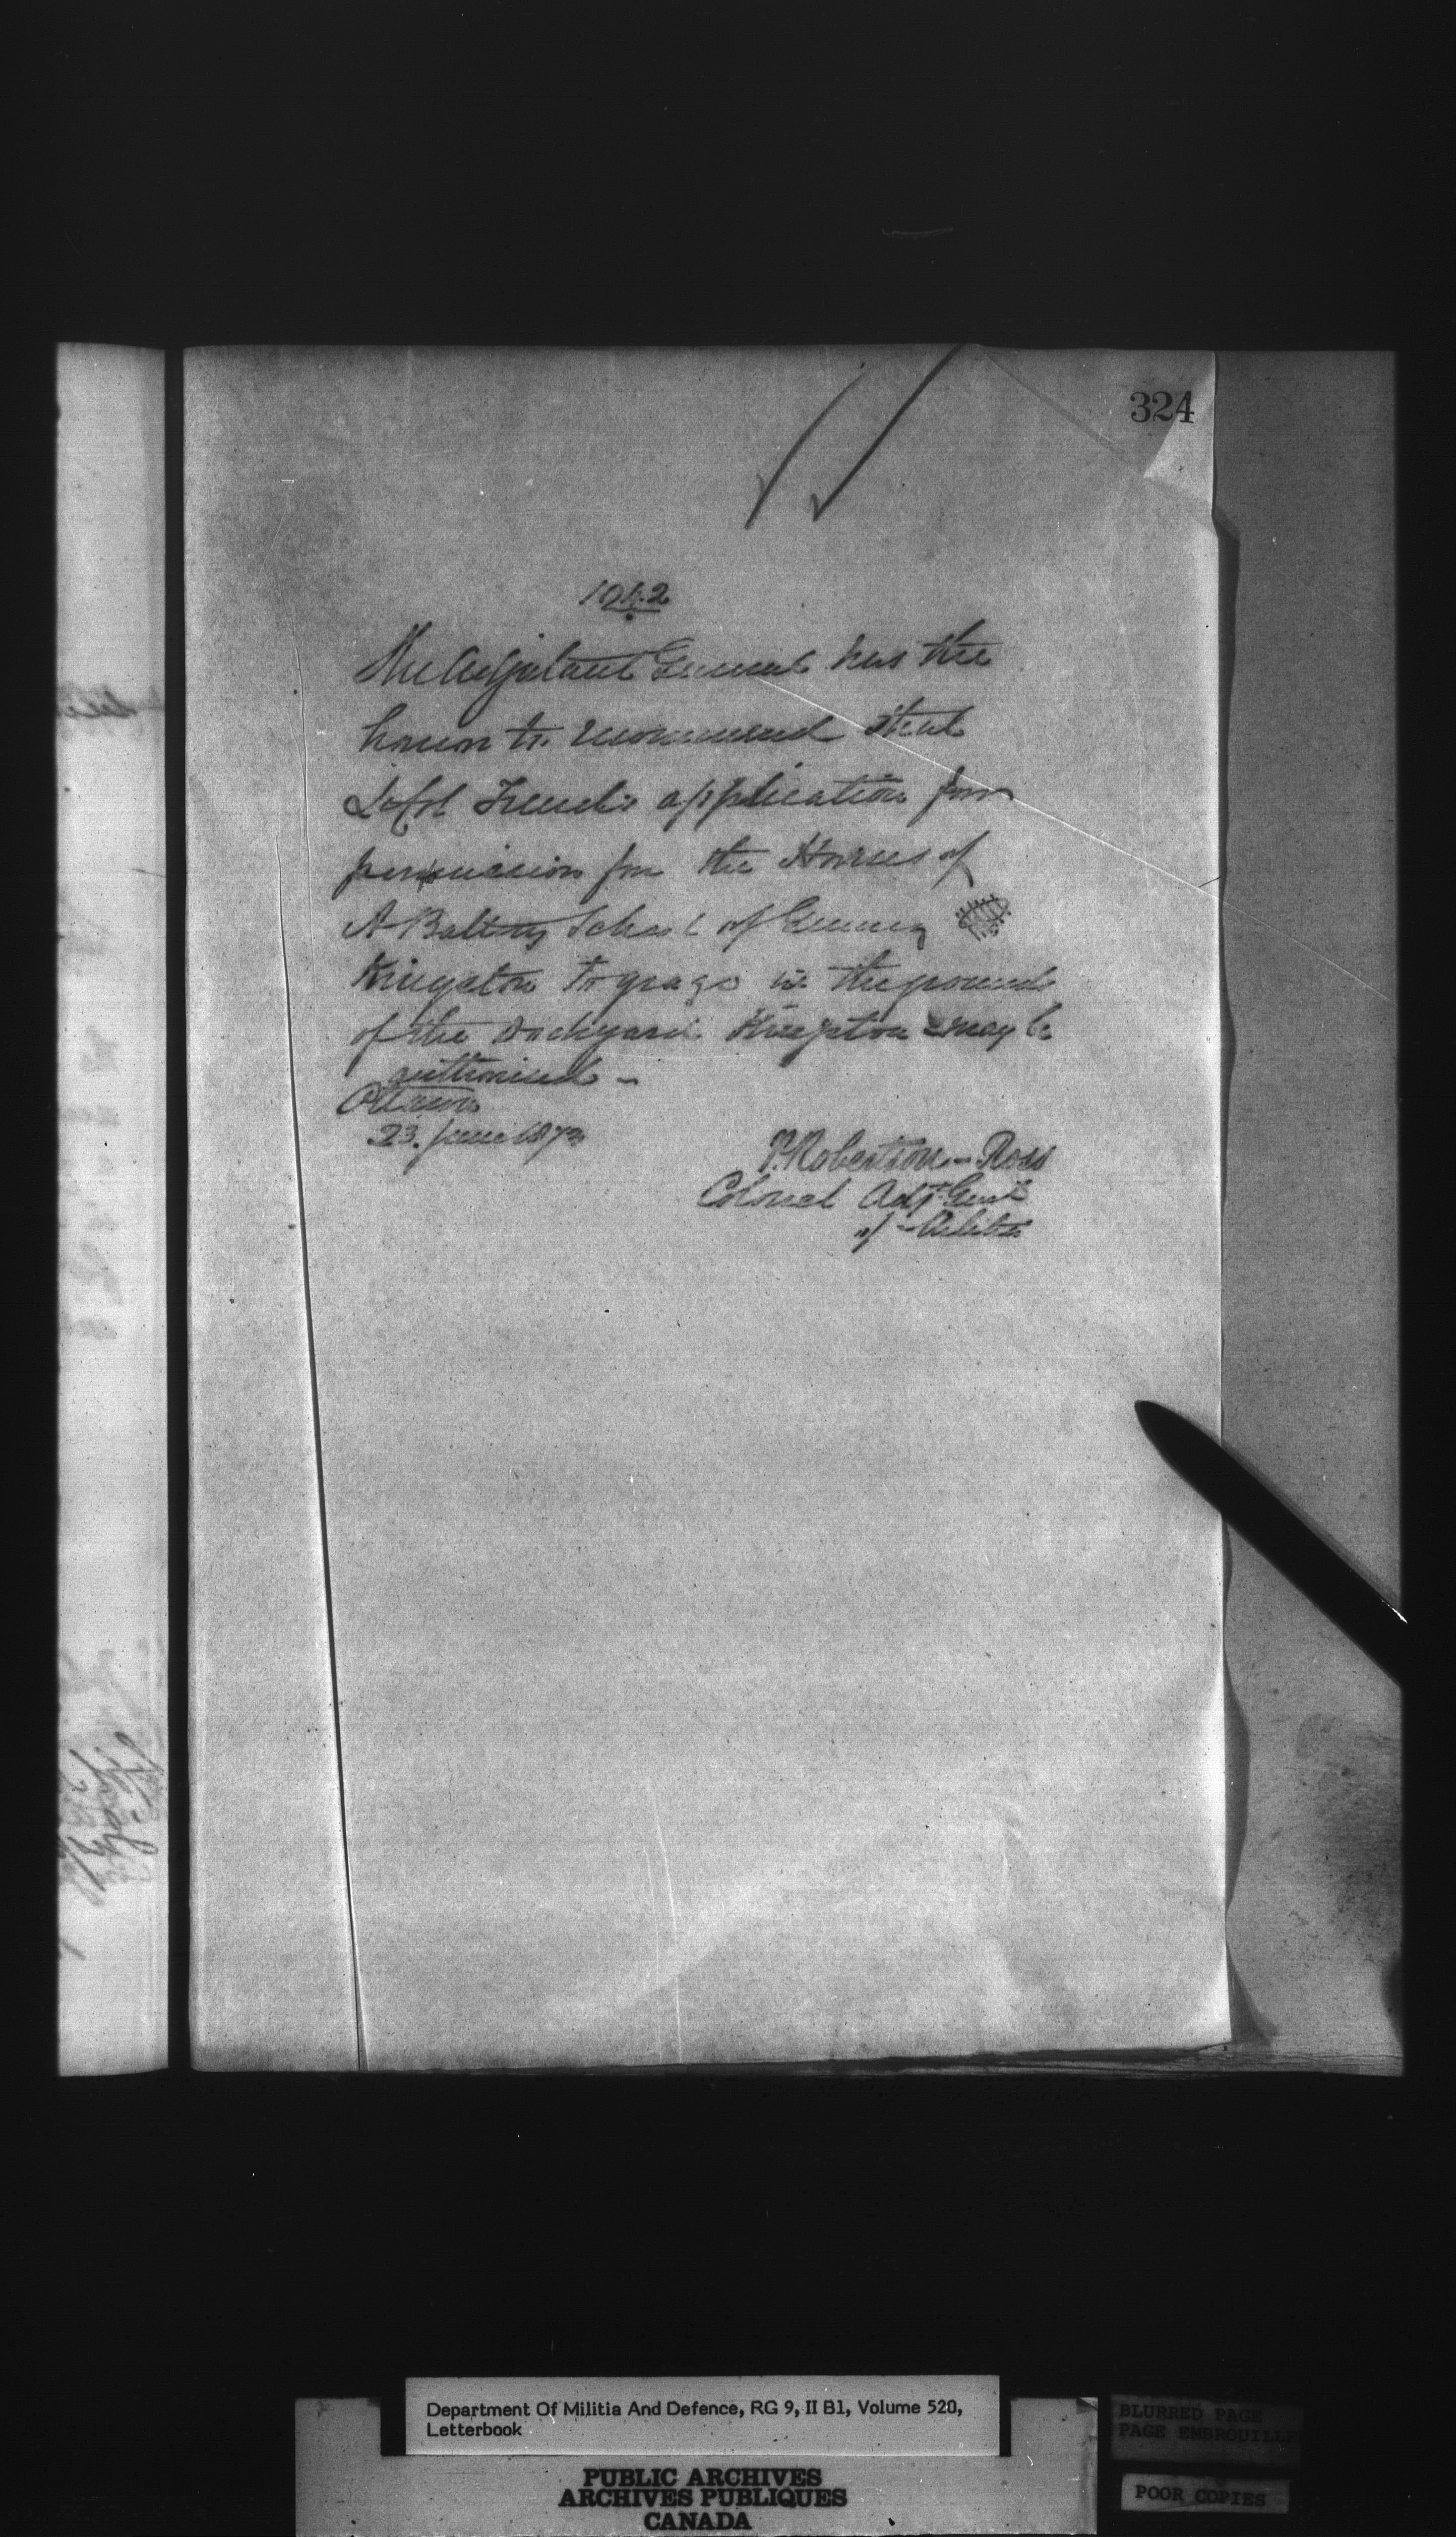 324
1042
The Adjutant General has the
honor to recommend that
Lt Col French's application for
permission for the Horses of
A Battery School of Gunnery
Kingston to graze in the grounds
of the Dockyard Kingston may be
authorised -
Ottawa
23. June 1873
P. Robertson - Ross
Colonel Adjt Genl
of Militia
Department Of Militia And Defence, RG 9, II B1, Volume 520,
Letterbook
PUBLIC ARCHIVES
ARCHIVES PUBLIQUES
CANADA
BLURRED PAGE
PAGE EMBROUILLE
POOR COPIES